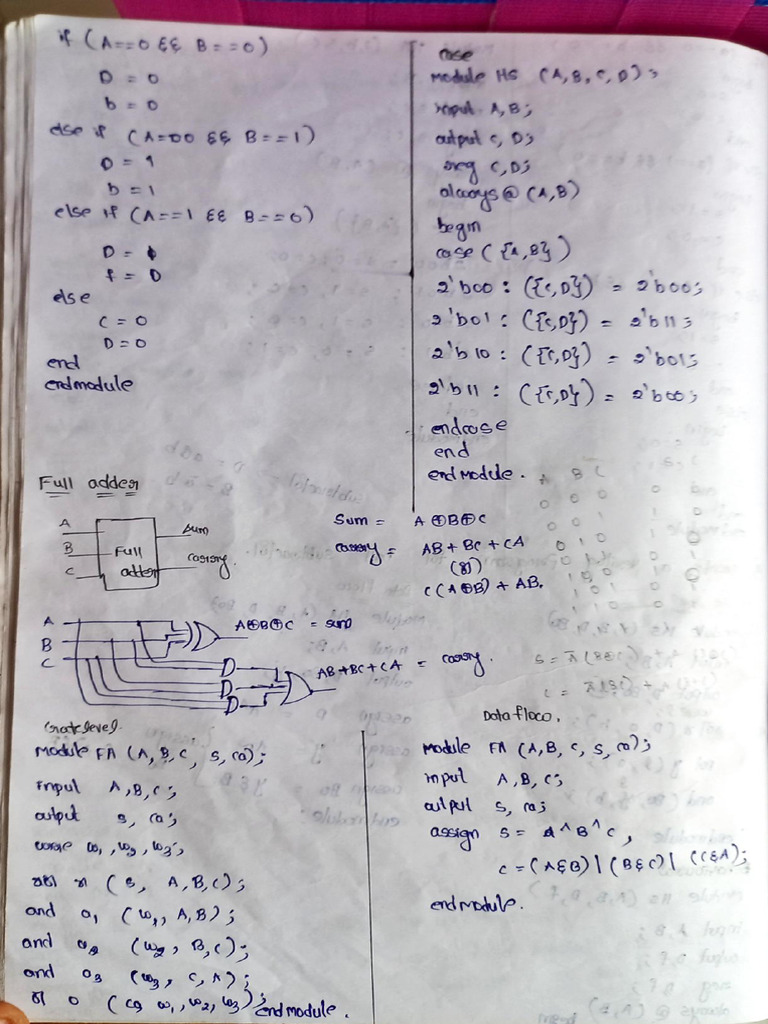 if (A==0 && B==0)
D = 0
b = 0
else if (A=00 && B==1)
D = 1
b = 1
else if (A==1 && B==0)
D =
f = 0
else
C = 0
D = 0
end
endmodule
case
module HS (A, B, C, D);
input A, B;
output C, D;
reg C, D;
always @ (A, B)
begin
case ({A, B})
2'b00 : ({C,D}) = 2'b00;
2'b01 : ({C,D}) = 2'b11;
2'b10 : ({C,D}) = 2'b01;
2'b11 : ({C,D}) = 2'b00;
endcase
end
endmodule.
Full adder
A
B
C
Full
adder
sum
carry.
Sum = A⊕B⊕C
carry = AB + BC + CA
(or)
C(A⊕B) + AB.
A
B
C
A⊕B⊕C = sum
AB+BC+CA = carry.
Gate level.
Module FA (A, B, C, S, ca);
input A, B, C;
output S, ca;
wire w1, w2, w3;
(S, A, B, C);
and a1 (w1, A, B);
and a2 (w2, B, C);
and a3 (w3, C, A);
or o (ca, w1, w2, w3);
endmodule.
Data flow.
Module FA (A, B, C, S, ca);
input A, B, C;
output S, ca;
assign S = A^B^C,
C = (A&B) | (B&C) | (C&A);
endmodule.